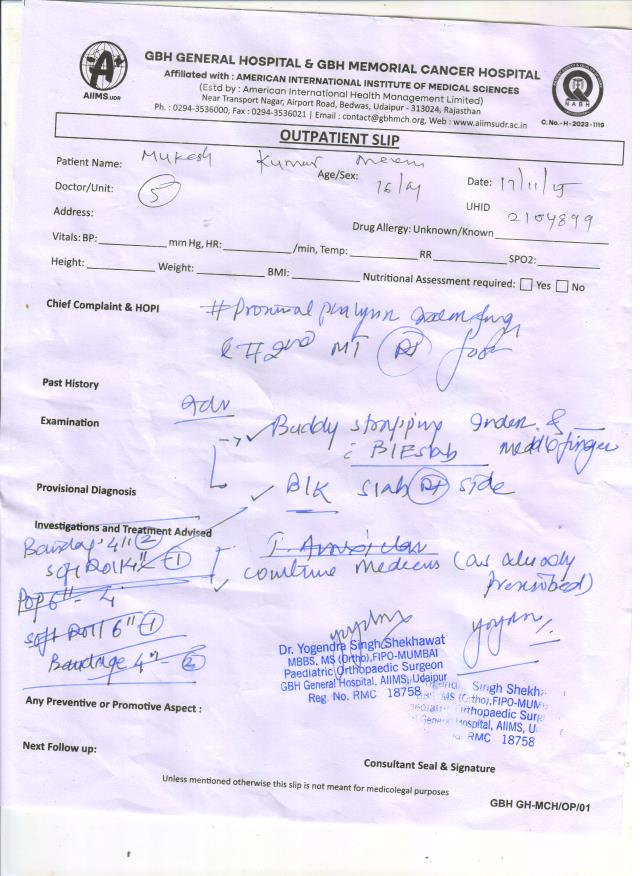 AIIMS.UDR
GBH GENERAL HOSPITAL & GBH MEMORIAL CANCER HOSPITAL
Affiliated with : AMERICAN INTERNATIONAL INSTITUTE OF MEDICAL SCIENCES
(Estd by : American International Health Management Limited)
Near Transport Nagar, Airport Road, Bedwas, Udaipur - 313024, Rajasthan
Ph. : 0294-3536000, Fax : 0294-3536021 | Email : contact@gbhmch.org, Web : www.aiimsudr.ac.in
NABH
C. No.- H - 2023 - 1119
OUTPATIENT SLIP
Patient Name: Mukesh Kumar Meena
Age/Sex: 16/M
Date: 17/11/15
Doctor/Unit: 5
UHID 2104899
Address:
Drug Allergy: Unknown/Known
Vitals: BP: mm Hg, HR: /min, Temp: RR SPO2:
Height: Weight: BMI: Nutritional Assessment required: Yes No
Chief Complaint & HOPI
# Proximal phalynx Index fing
# 2nd MT Rt foot
Past History
Adv
Examination
Buddy strapping Index & middle finger
B/E slab
Provisional Diagnosis
B/K slab Rt side
Investigations and Treatment Advised
Bandage 4" 2
soft Roll 4" 1
continue medicines (as already prescribed)
POP 6" - 4
soft Roll 6" 1
Bandage 4" - 2
Dr. Yogendra Singh Shekhawat
MBBS, MS (Ortho),FIPO-MUMBAI
Paediatric Orthopaedic Surgeon
GBH General Hospital, AIIMS, Udaipur
Reg. No. RMC 18758
Singh Shekha
MS (Ortho),FIPO-MUM
Orthopaedic Surg
General Hospital, AIIMS, U
RMC 18758
Any Preventive or Promotive Aspect :
Next Follow up:
Consultant Seal & Signature
Unless mentioned otherwise this slip is not meant for medicolegal purposes
GBH GH-MCH/OP/01